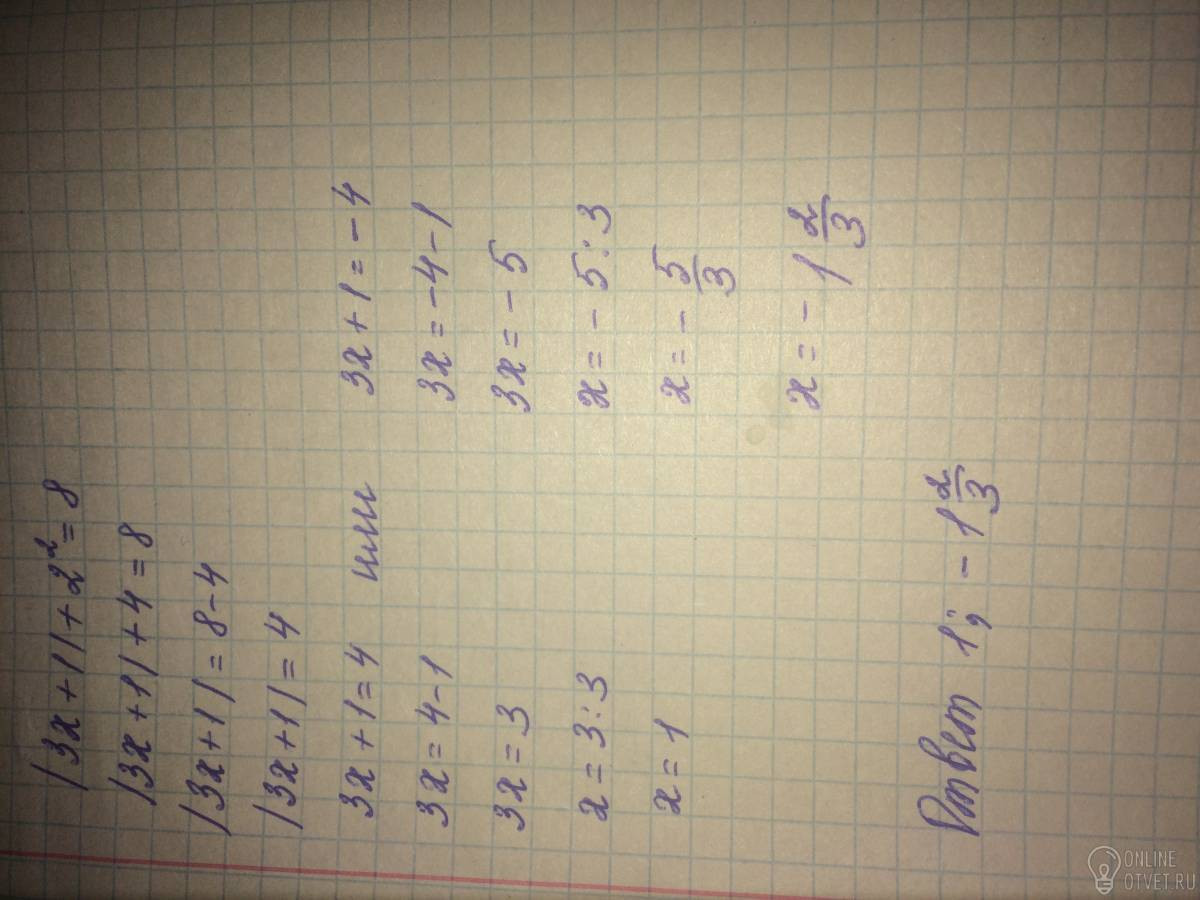 |3x+1|+2²=8
|3x+1|+4=8
|3x+1|=8-4
|3x+1|=4
3x+1=4 или 3x+1=-4
3x=4-1 3x=-4-1
3x=3 3x=-5
x=3:3 x=-5:3
x=1 x=-5/3
x=-1 2/3
Ответ 1; -1 2/3
ONLINE
OTVET.RU